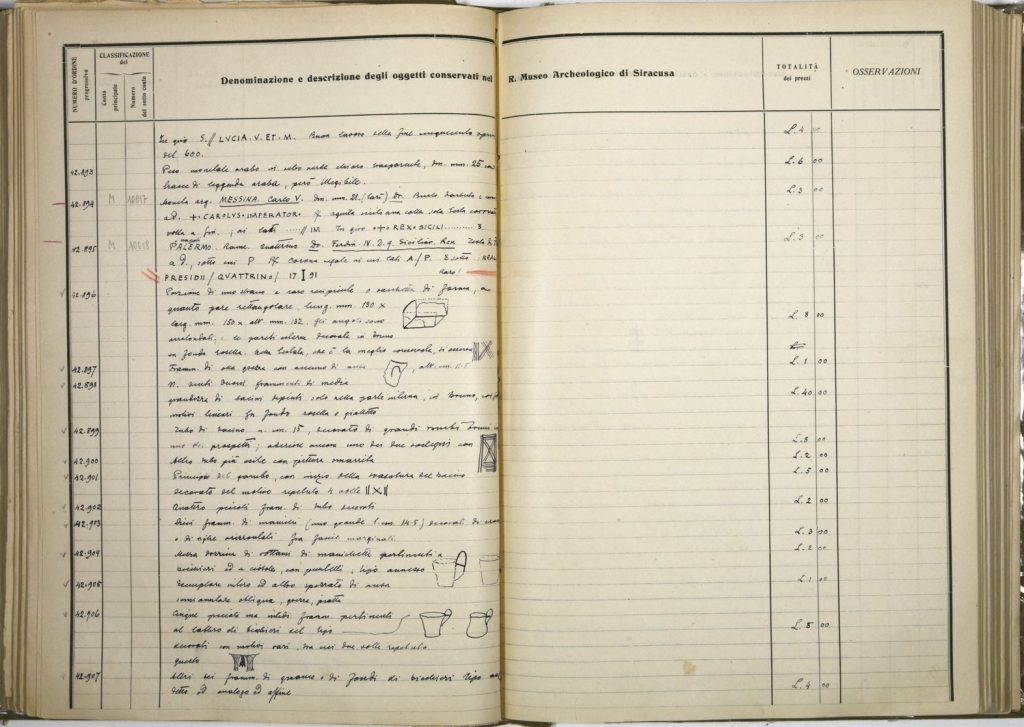 NUMERO D'ORDINE progressivo
CLASSIFICAZIONE del
Conto principale
Numero del sotto conto
Denominazione e descrizione degli oggetti conservati nel R. Museo Archeologico di Siracusa
TOTALITÀ dei prezzi
OSSERVAZIONI
S. // LVCIA. V. ET. M. Buon lavoro della fine cinquecento L. 4 00
del 600.
42.893 Peso monetale arabo in vetro verde chiaro trasparente, dm. mm. 25 con L. 6 00
tracce di leggenda araba, però illegibile.
42.894 M 10017 MESSINA. Carlo V. dm. mm. 21. Dr. Busto barbuto L. 3 00
a d. + CAROLVS • IMPERATOR R/ aquila colla sola testa coronata
volta a sin. ; ai lati IM In giro + REX • SICILI 3.
42.895 M 10018 PALERMO. Rame. Quattrino Dr. Ferdin. IV. D. g. Siciliar. Rex Testa L. 3 00
a d., sotto P R/ corona reale ai cui lati A./ P. E sotto : REAL
PRESIDII / QVATTRINO / 17 I 91 Raro!
42.896 Porzione di uno strano e raro recipiente o di forma, a
quanto pare rettangolare, lung. mm. 190 x
larg. mm. 150 x alt. mm. 132. Gli angoli sono L. 8 00
arrotondati, e le pareti esterne decorate in bruno
su fondo rosella. che è la meglio conservata, si
42.897 Framm. di olla grezza con di ansa , alt. cm. L. 1 00
42.898 N. venti frammenti di media
grandezza di bacini dipinti solo nella parte interna, in bruno, L. 40 00
motivi lineari su fondo rosella e gialletto
42.899 Tubo di bacino a. cm. 15, decorato di grandi rombi bruni
uno dei prospetti; aderisce ancora uno dei due sostegni con L. 8 00
42.900 Altro tubo più esile con pittura smarrita L. 2 00
42.901 Principio del gambo, con inizio della svasatura del bacino L. 5 00
decorato del motivo ripetuto 4 volte
42.902 Quattro piccoli framm. di tubo decorati L. 2 00
42.903 Dieci framm. di manichi (uno grande l. cm. 14.5) decorati di L. 3 00
o di righe orizzontali fra fascie marginali.
42.904 Mezza dozzina di di manichetti pertinenti a L. 2 00
bicchieri od a ciotole, con puntelli; tipo annesso
42.905 Esemplare intero ed altro spezzato di ansa L. 1 00
semianulare obliqua, grezza, piatta
42.906 Cinque piccoli framm. pertinenti
al labbro di bicchieri del tipo L. 8 00
decorati con motivi vari, tra cui due volte ripetuto
questo
42.907 Altri sei framm. di e di fondi di bicchieri tipo
detto od analogo ed affine L. 4 00